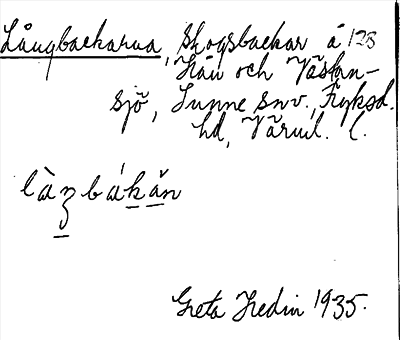 Långbackarna, Skogsbackar å 123
Hån och Västan-
sjö, Sunne snv., Fryksd.
hd, Värml. l.
làʒbákăn
Greta Hedin 1935.